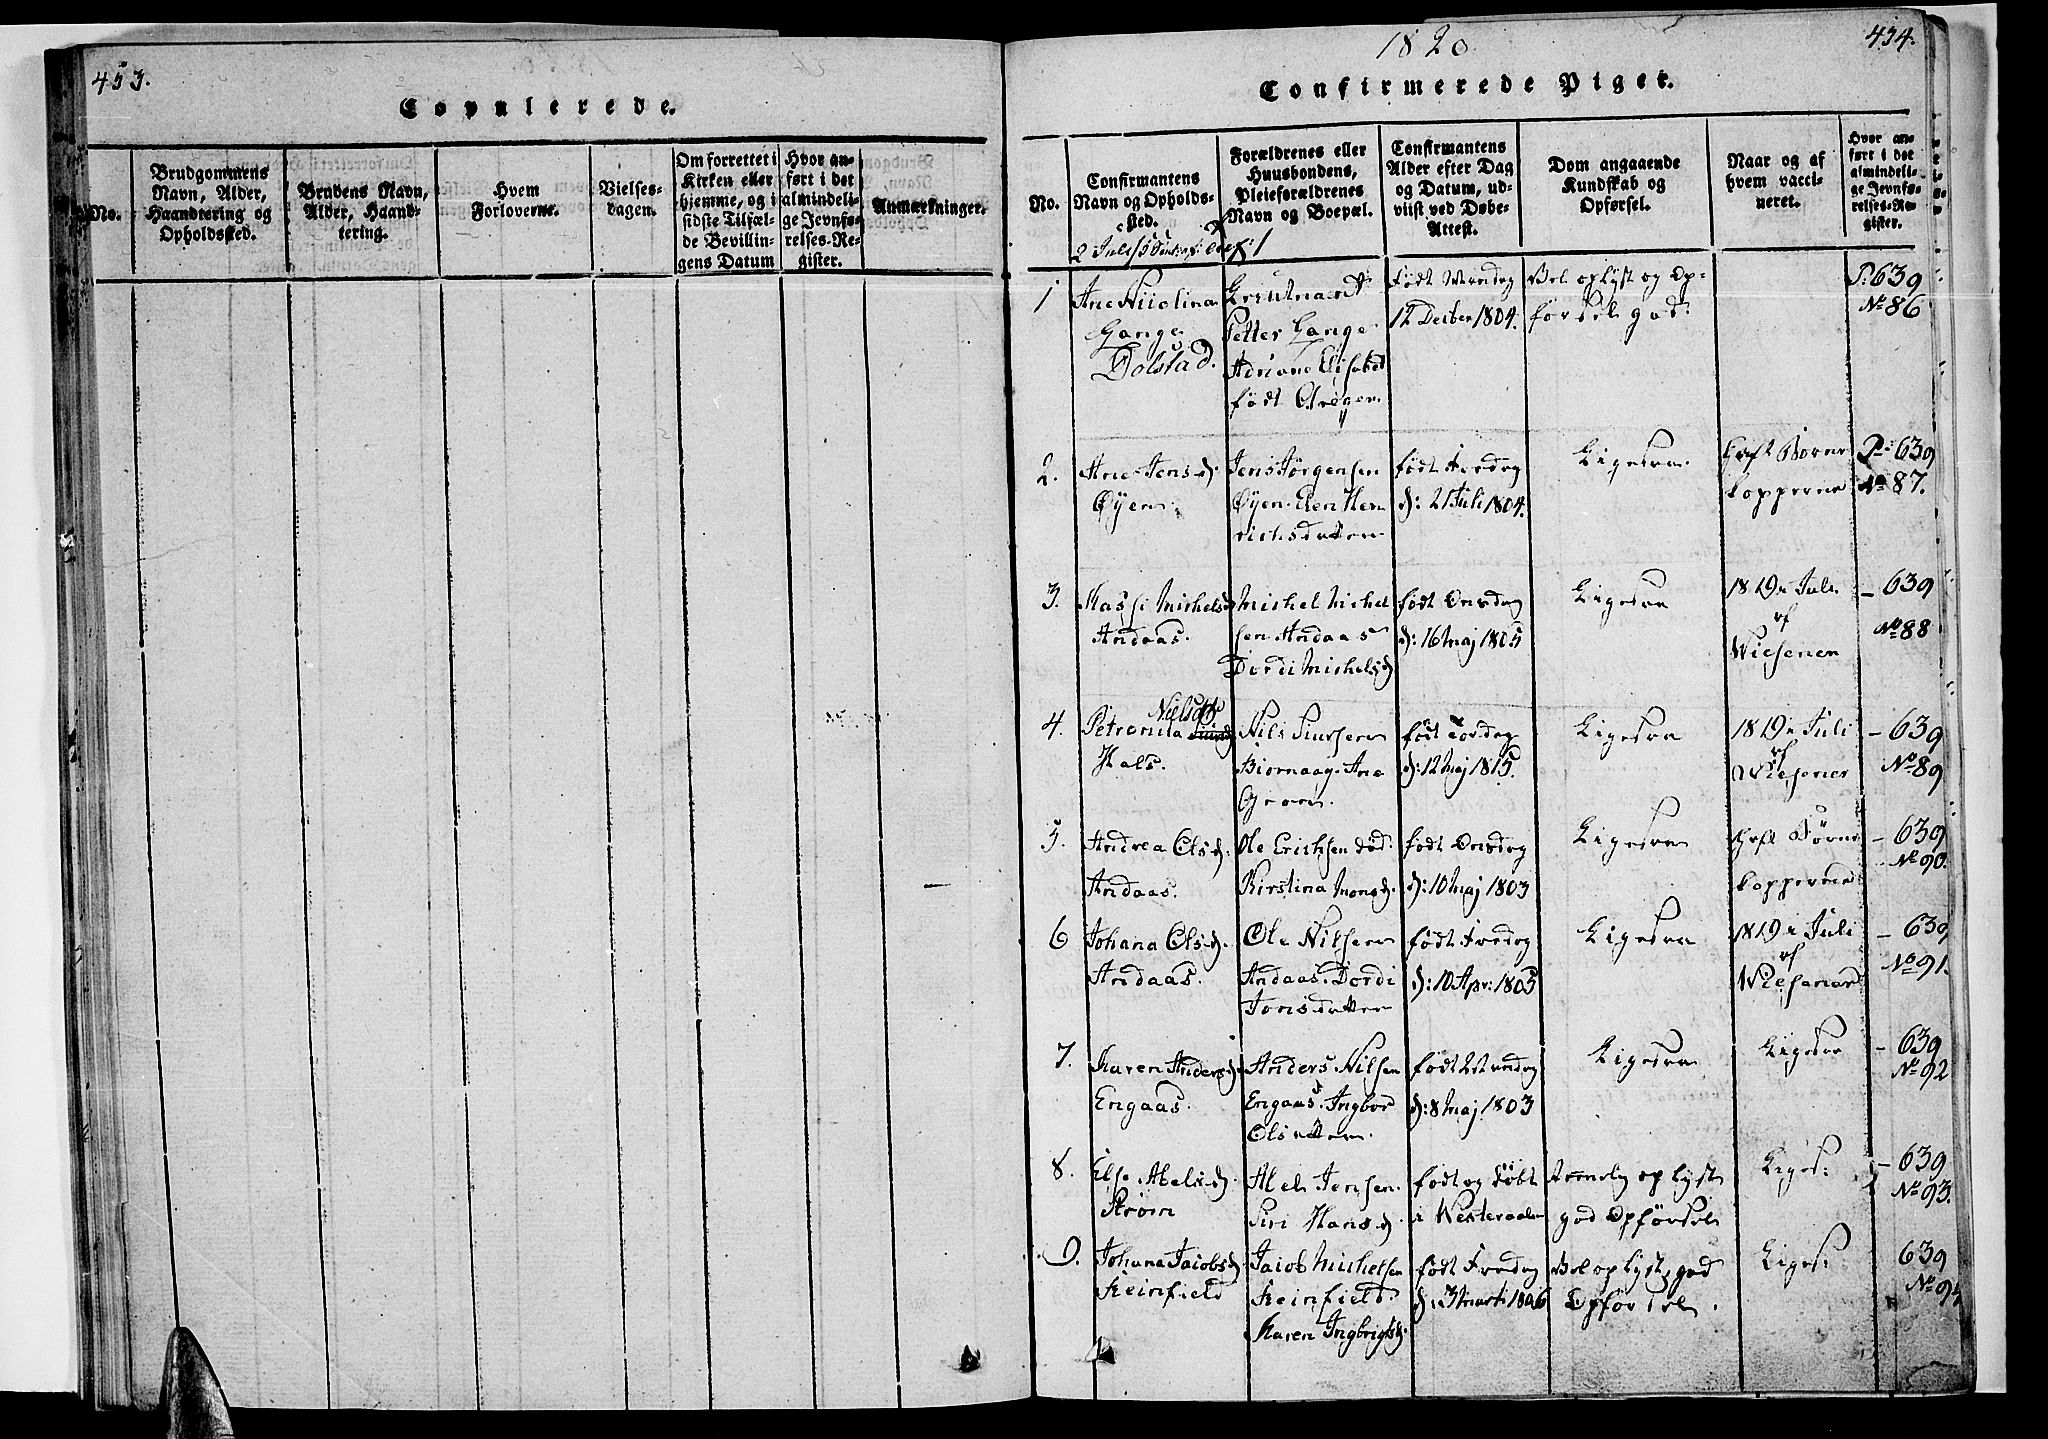 453.
Copulerede.
No.
Brudgommens
Navn, Alder,
Haandtering og
Opholdssted.
Brudens Navn,
Alder, Haand-
tering.
Hvem
Forloverne.
Vielses-
dagen.
Om forrettet i
Kirken eller
hjemme, og i
sidste Tilfæl-
de Bevillin-
gens Datum
Hvor an-
ført i det
almindeli-
ge Jevnfø-
relses-Re-
gister.
Anmærkninger.
1820
434.
Confirmerede Piger.
No.
Confirmantens
Navn og Opholds-
sted.
Forældrenes eller
Huusbondens,
Pleieforældrenes
Navn og Boepæl.
Confirmantens
Alder efter Dag
og Datum, ud-
viist ved Døbe-
Attest.
Dom angaaende
Kundskab og
Opførsel.
Naar og af
hvem vacci-
neret.
Hvor an-
ført i det
almindeli-
ge Jevnfø-
relses-Re-
gister.
2 Juli
1
Ane Nicolina
Lange
Dolstad.
Petter Lange
Adriane Elisabet
født
Født
12 Decber 1804.
Vel oplyst og Op-
førsel god.
P: 639
No 86
2.
Ane Jensd.
Øyen
Jens Jørgensen
Øyen. Elen Hen
richsdatter
født Fredag
d: 2 Juli 1804.
Ligesaa
haft Børne
kopperne
P: 639
No 87.
3.
Michelsd
Andaas.
Michel Michel
sen Andaas
Dordi Michelsd
født Onsdag
d: 16 Maj 1805
Ligesaa
1819 i Juli
af
Wiesener
- 639
No 88
4.
Nielsd
Petronila
Hals.
Nils Siursen
Biornaag. Ana
født Tordag
d: 12 Maj 1815.
Ligesaa
1819 i Juli
af
Wiesener
- 639
No 89
5.
Andrea Olsd.
Andaas.
Ole Erichsen død.
Kirstina Monsd.
født Onsdag
d: 10 Maj 1803
Ligesaa
haft Børne
kopperne
- 639
No 90.
6
Johana Olsd.
Andaas.
Ole Nilsen
Andaas. Dordi
Jonsdatter
født Fredag
d: 10 Apr: 1805
Ligesaa
1819 i Juli
af
Wiesener
- 639
No 91.
7.
Karen Andersd.
Engaas.
Anders Nilsen
Engaas. Ingbor
Olsdatter.
født
d: 8 Maj 1803
Ligesaa
Ligesaa
- 639
No 92
8.
Else Abelsd.
Strøm
Abel Jensen
Siri Hansd.
født og døbt
i Westeraalen
oplyst
god Opførsel
Liges:
- 639
No 93.
9.
Johana Jacobsd.
Steinfield
Jacob Michelsen
Steinfield.
Karen Ingbrigtsd.
født Fredag
d. 3 Marti 1806
Vel oplyst, god
Opførsel.
Liges:
639
No 94